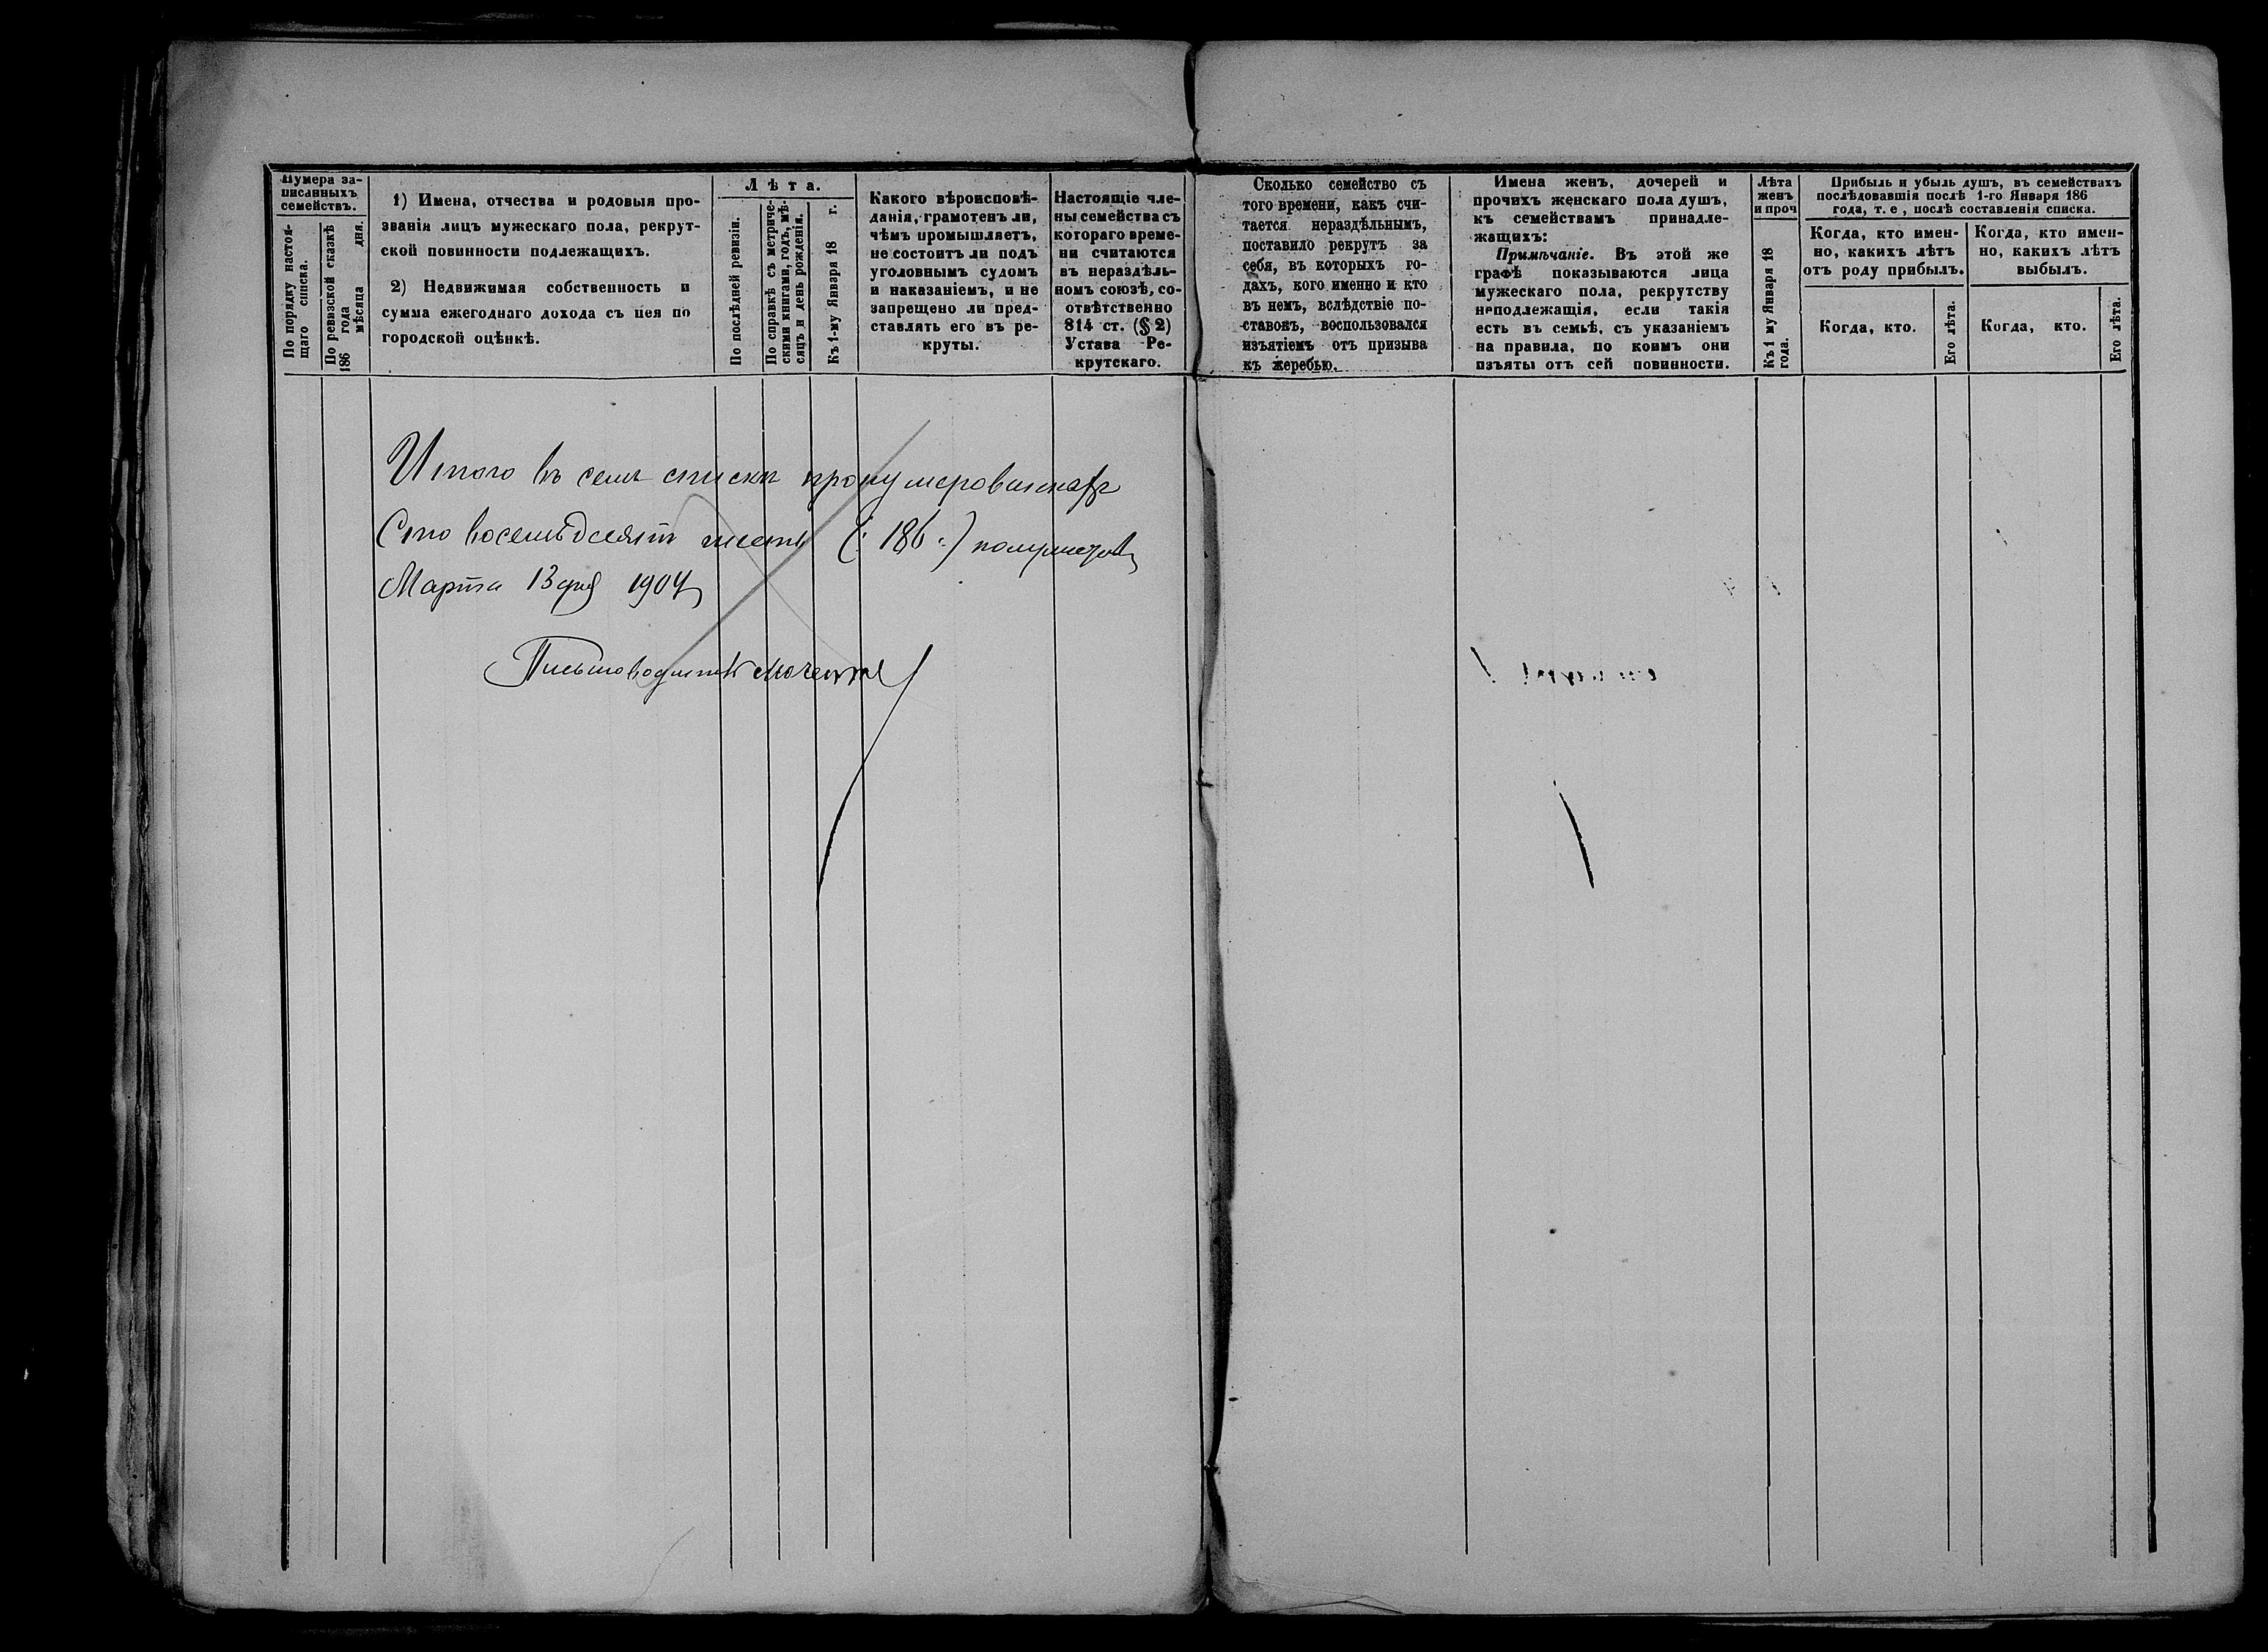 Нумера за-
писанныхъ
семействъ.
По порядку настоя-
щаго списка.
По ревизской сказкѣ
186 года мѣсяца дня.
1) Имена, отчества и родовыя про-
званія лицъ мужескаго пола, рекрут-
ской повинности подлежащихъ.
2) Недвижимая собственность и
сумма ежегоднаго дохода съ нея по
городской оцѣнкѣ.
Лѣта.
По послѣдней ревизіи.
По справкѣ съ метриче-
скими книгами, годъ, мѣ-
сяцъ и день рожденія.
Къ 1-му Января 18 г.
Какого вѣроисповѣ-
данія, грамотенъ ли,
чѣмъ промышляетъ,
не состоитъ ли подъ
уголовнымъ судомъ
и наказаніемъ, и не
запрещено ли пред-
ставлять его въ ре-
круты.
Настоящіе чле-
ны семейства съ
котораго време-
ни считаются
въ нераздѣль-
номъ союзѣ, со-
отвѣтственно
814 ст. (§ 2)
Устава Ре-
крутскаго.
Сколько семейство съ
того времени, какъ счи-
тается нераздѣльнымъ,
поставило рекрутъ за
себя, въ которыхъ го-
дахъ, кого именно и кто
въ немъ, вслѣдствіе по-
ставокъ, воспользовался
изъятіемъ отъ призыва
къ жеребью.
Имена женъ, дочерей и
прочихъ женскаго пола душъ,
къ семействамъ принадле-
жащихъ:
Примѣчаніе. Въ этой же
графѣ показываются лица
мужескаго пола, рекрутству
неподлежащія, если такія
есть въ семьѣ, съ указаніемъ
на правила, по коимъ они
изъяты отъ сей повинности.
Лѣта
женъ
и проч
Къ 1 му Января 18
года.
Прибыль и убыль душъ, въ семействахъ
послѣдовавшія послѣ 1-го Января 186
года, т. е, послѣ составленія списка.
Когда, кто имен-
но, какихъ лѣтъ
отъ роду прибылъ.
Когда, кто.
Его лѣта.
Когда, кто имен-
но, какихъ лѣтъ
выбылъ.
Когда, кто.
Его лѣта.
Итого въ семъ списки пронумерованных
Сто восемьдесятъ шесть (: 186 :) полулистовъ
Марта 13 дня 1904
Письмоводитель